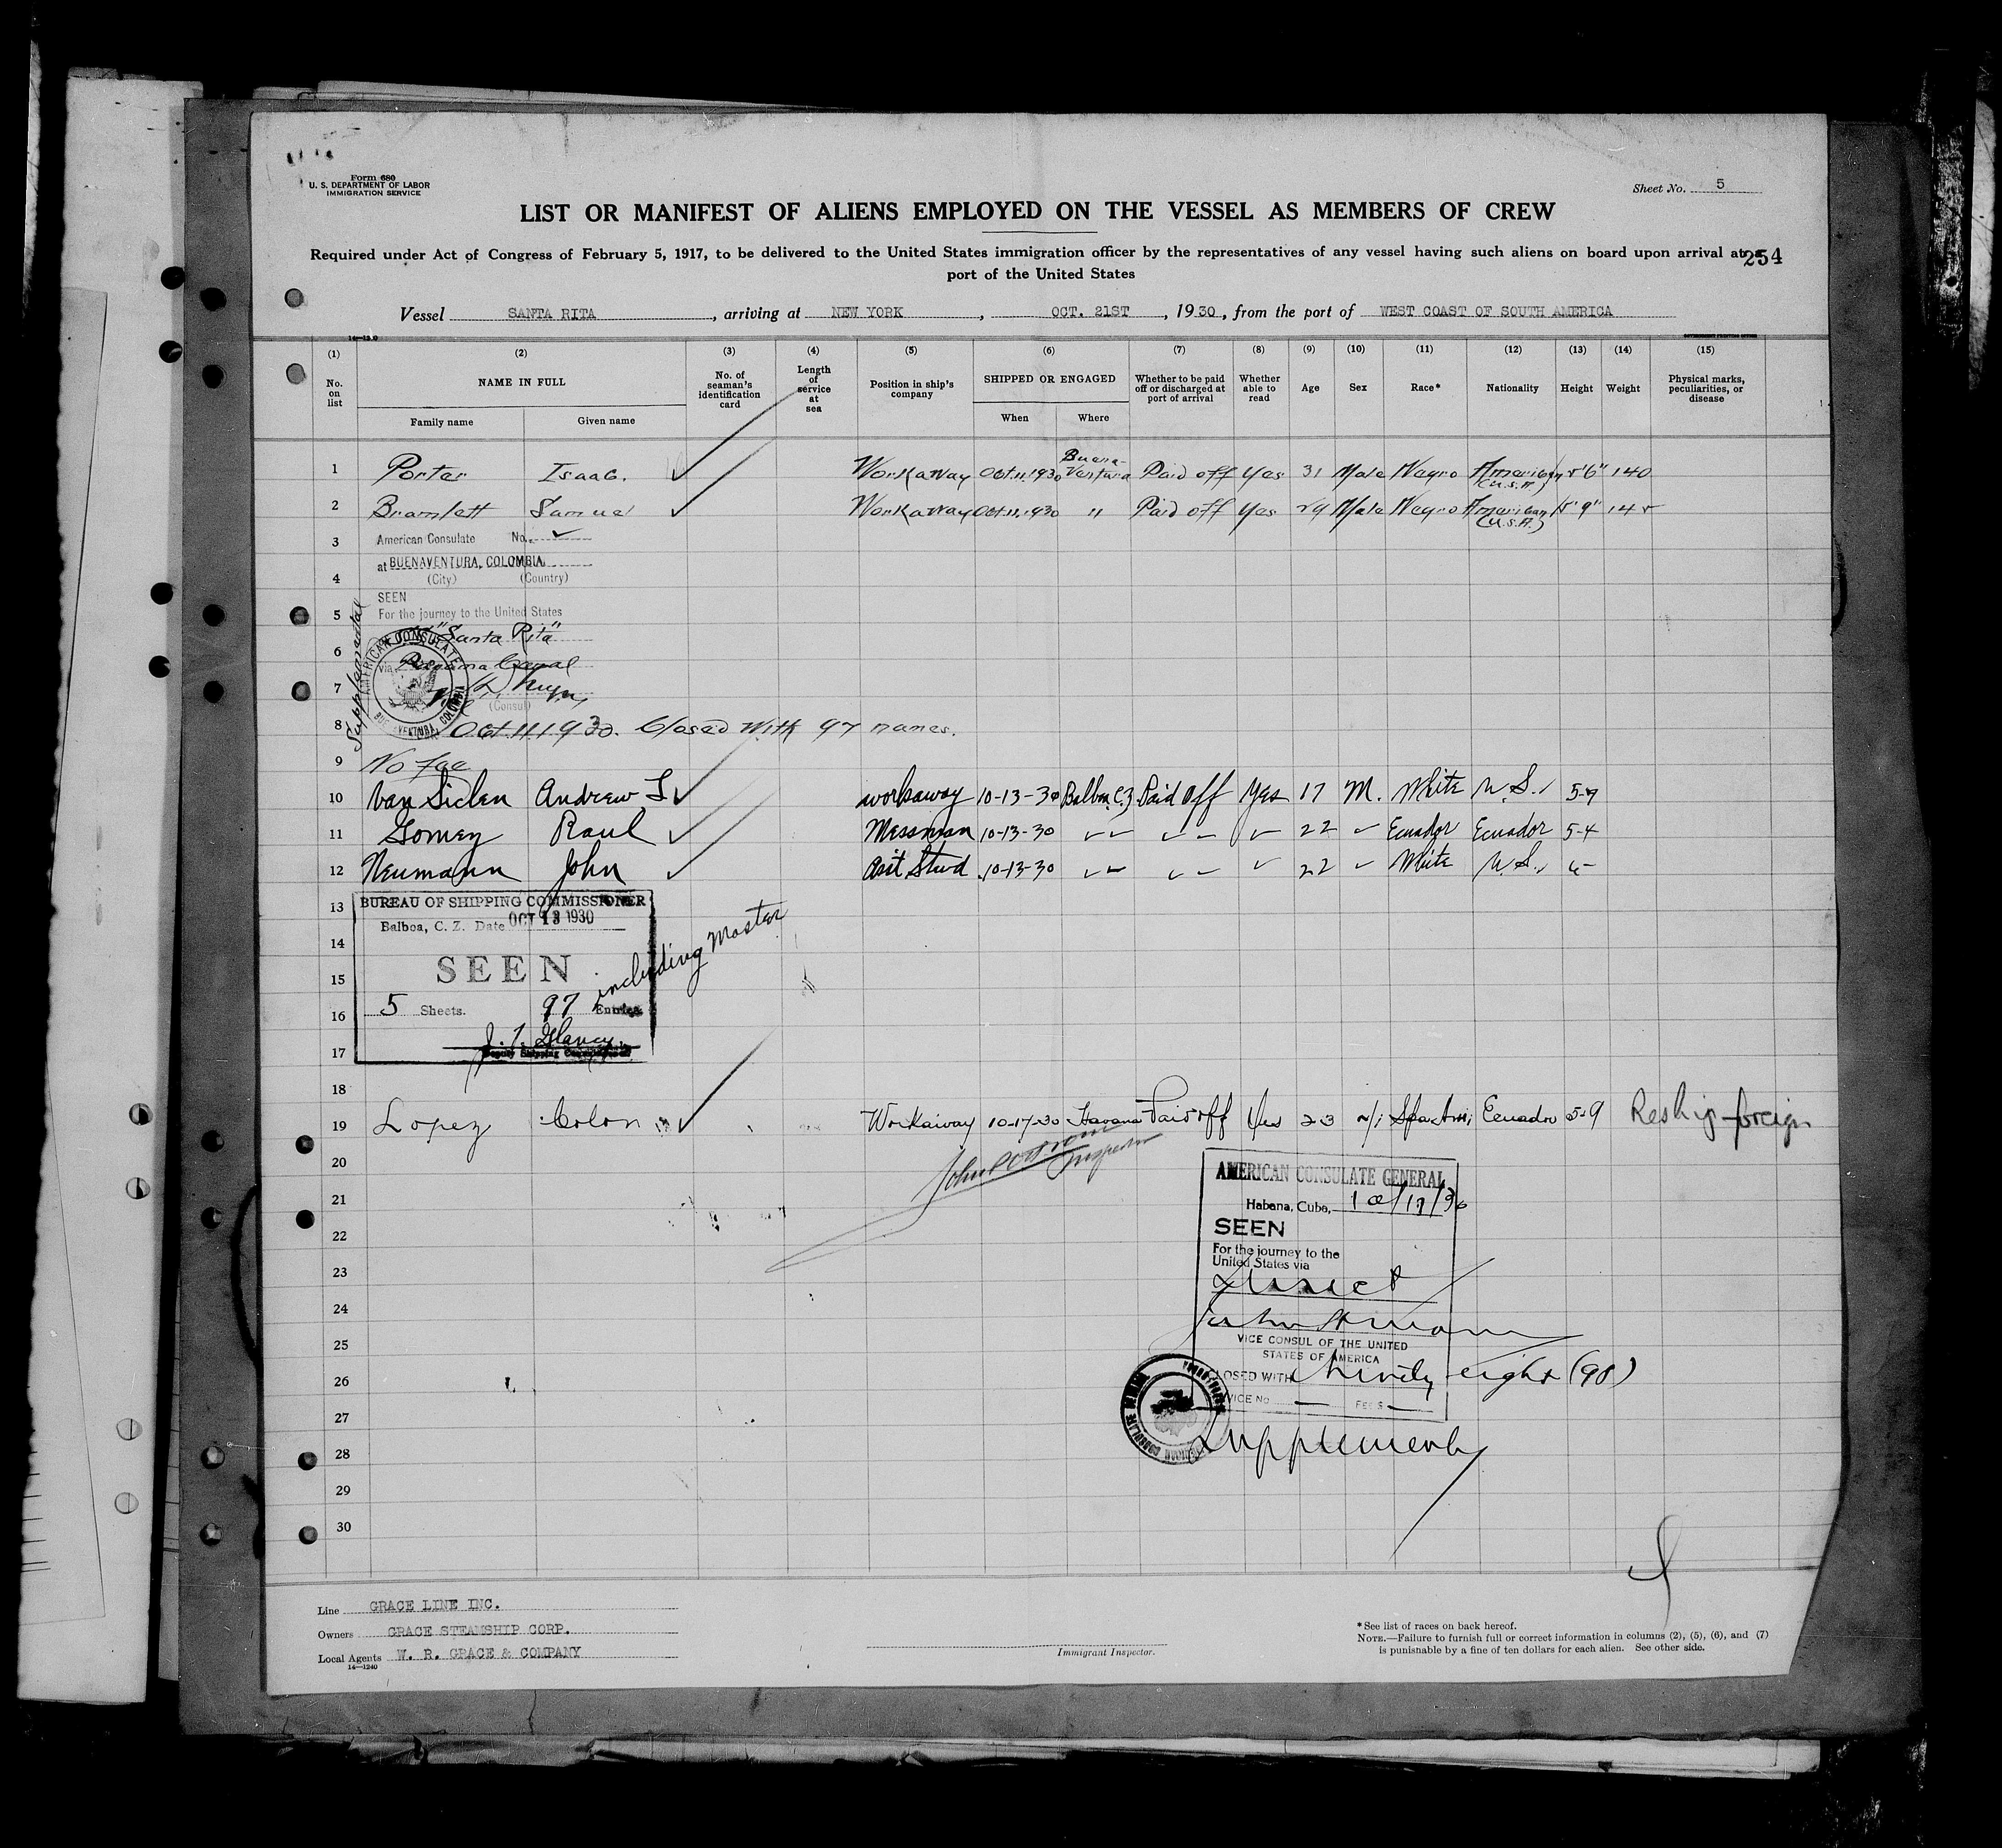 Form 680
U. S. DEPARTMENT OF LABOR
IMMIGRATION SERVICE
Sheet No. 5
LIST OR MANIFEST OF ALIENS EMPLOYED ON THE VESSEL AS MEMBERS OF CREW
Required under Act of Congress of February 5, 1917, to be delivered to the United States immigration officer by the representatives of any vessel having such aliens on board upon arrival at a
port of the United States
254
Vessel SANTA RITA, arriving at NEW YORK, OCT. 21ST, 1930, from the port of WEST COAST OF SOUTH AMERICA
(1) (2) (3) (4) (5) (6) (7) (8) (9) (10) (11) (12) (13) (14) (15)
No. on list NAME IN FULL No. of seaman's identification card Length of service at sea Position in ship's company SHIPPED OR ENGAGED Whether to be paid off or discharged at port of arrival Whether able to read Age Sex Race* Nationality Height Weight Physical marks, peculiarities, or disease
Family name Given name When Where
1 Porter Isaac. Workaway Oct. 11. 1930 Buena-Ventura Paid off Yes 31 Male Negro American (U.S.A.) 5'6" 140
2 Bramlett Samuel Workaway Oct. 11. 1930 " Paid off Yes 29 Male Negro American (U.S.A.) 5'9" 145
3 American Consulate No.
at BUENAVENTURA, COLOMBIA
4 (City) (Country)
SEEN
5 For the journey to the United States
"Santa Rita"
6 via Panama Canal
7
(Consul)
AMERICAN CONSULATE
BUENAVENTURA, COLOMBIA
Supplemental
8 Oct. 11 1930. Closed With 97 names.
9 No fee
10 Van Siclen Andrew L workaway 10-13-30 Balboa C.Z. Paid off Yes 17 M. White U.S. 5-9
11 Gomez Raul Messman 10-13-30 22 Ecuador Ecuador 5-4
12 Neumann John Asst Stwd 10-13-30 22 White U.S.
13 BUREAU OF SHIPPING COMMISSIONER
Balboa, C. Z. Date OCT 13 1930
14
15 SEEN
including Master
16 5 Sheets. 97 Entries
J. T. Glancy
17 Deputy Shipping Commissioner
18
19 Lopez Colon Workaway 10-17-30 Havana Paid off Yes 23 Ecuador 5-9 Reship foreign
20
Inspector
AMERICAN CONSULATE GENERAL
21 Habana, Cuba,
22 SEEN
For the journey to the
United States via
23 Direct
24
25 VICE CONSUL OF THE UNITED
STATES OF AMERICA
26 CLOSED WITH Ninety eight (98)
27 SERVICE No. FEES
28 Supplementary
29
30
Line GRACE LINE INC.
Owners GRACE STEAMSHIP CORP.
Local Agents W. R. GRACE & COMPANY
14—1240
Immigrant Inspector.
*See list of races on back hereof.
NOTE.—Failure to furnish full or correct information in columns (2), (5), (6), and (7)
is punishable by a fine of ten dollars for each alien. See other side.